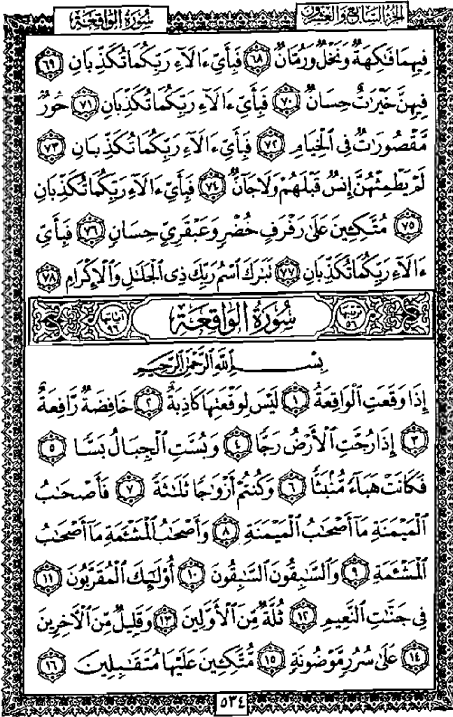 الجزء السابع والعشرون سُورَةُ الوَاقِعَةِ
فِيهِمَا فَٰكِهَةٌ وَنَخْلٌ وَرُمَّانٌ ٦٨ فَبِأَيِّ ءَالَآءِ رَبِّكُمَا تُكَذِّبَانِ ٦٩
فِيهِنَّ خَيْرَٰتٌ حِسَانٌ ٧٠ فَبِأَيِّ ءَالَآءِ رَبِّكُمَا تُكَذِّبَانِ ٧١ حُورٌ
مَّقْصُورَٰتٌ فِي ٱلْخِيَامِ ٧٢ فَبِأَيِّ ءَالَآءِ رَبِّكُمَا تُكَذِّبَانِ ٧٣
لَمْ يَطْمِثْهُنَّ إِنسٌ قَبْلَهُمْ وَلَا جَآنٌّ ٧٤ فَبِأَيِّ ءَالَآءِ رَبِّكُمَا تُكَذِّبَانِ
٧٥ مُتَّكِـِٔينَ عَلَىٰ رَفْرَفٍ خُضْرٍ وَعَبْقَرِيٍّ حِسَانٍ ٧٦ فَبِأَيِّ
ءَالَآءِ رَبِّكُمَا تُكَذِّبَانِ ٧٧ تَبَٰرَكَ ٱسْمُ رَبِّكَ ذِي ٱلْجَلَٰلِ وَٱلْإِكْرَامِ ٧٨
ترتيبها ٥٦ سُورَةُ الوَاقِعَةِ آياتها ٩٦
بِسْمِ ٱللَّهِ ٱلرَّحْمَٰنِ ٱلرَّحِيمِ
إِذَا وَقَعَتِ ٱلْوَاقِعَةُ ١ لَيْسَ لِوَقْعَتِهَا كَاذِبَةٌ ٢ خَافِضَةٌ رَّافِعَةٌ
٣ إِذَا رُجَّتِ ٱلْأَرْضُ رَجًّا ٤ وَبُسَّتِ ٱلْجِبَالُ بَسًّا ٥
فَكَانَتْ هَبَآءً مُّنۢبَثًّا ٦ وَكُنتُمْ أَزْوَٰجًا ثَلَٰثَةً ٧ فَأَصْحَٰبُ
ٱلْمَيْمَنَةِ مَآ أَصْحَٰبُ ٱلْمَيْمَنَةِ ٨ وَأَصْحَٰبُ ٱلْمَشْـَٔمَةِ مَآ أَصْحَٰبُ
ٱلْمَشْـَٔمَةِ ٩ وَٱلسَّٰبِقُونَ ٱلسَّٰبِقُونَ ١٠ أُو۟لَٰٓئِكَ ٱلْمُقَرَّبُونَ ١١
فِي جَنَّٰتِ ٱلنَّعِيمِ ١٢ ثُلَّةٌ مِّنَ ٱلْأَوَّلِينَ ١٣ وَقَلِيلٌ مِّنَ ٱلْءَاخِرِينَ
١٤ عَلَىٰ سُرُرٍ مَّوْضُونَةٍ ١٥ مُّتَّكِـِٔينَ عَلَيْهَا مُتَقَٰبِلِينَ ١٦
٥٣٤